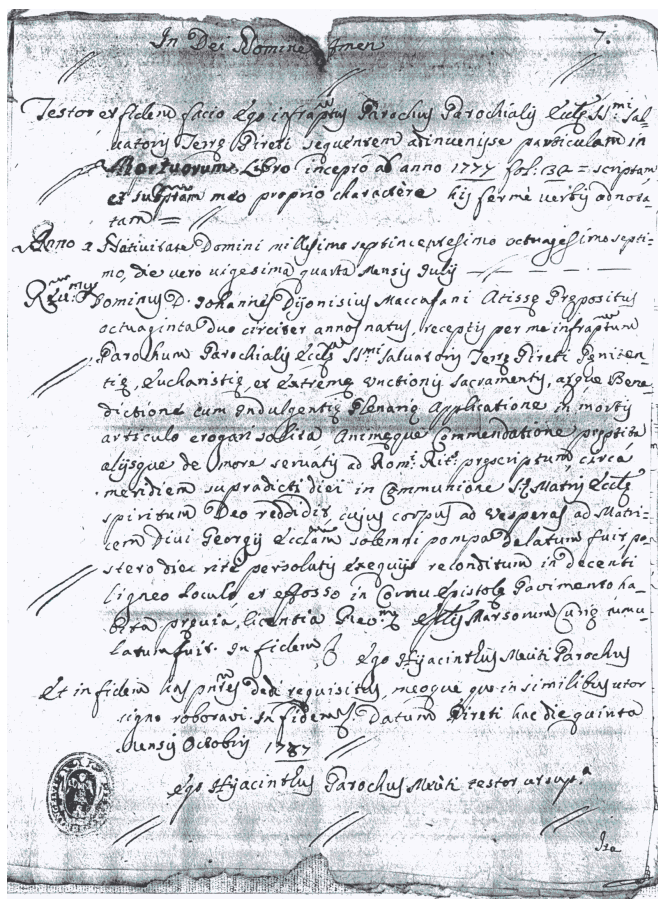 In Dei Nomine Amen 7.
Testor et fidem facio Ego infraptus Parochus Parochialis Eccles SSmi Sal-
uatoris Terrę Pireti sequentem adinuenisse particulam in
Mortuorum Libro incepto ab anno 1777 fol: 32 = scriptam
et subptam meo proprio charactere his fermè verbis adnota
tam =
Anno a Natiuitate Domini millesimo septincentesimo octuagesimo septi-
mo, die vero uigesima quarta Mensis Julij
Dominus D. Johannes Dijonisius Maccafani Atissę Prępositus
octuaginta duo circiter annos natus, receptis per me infraptum
Parochum Parochialis Eccles SSmi Saluatoris Terrę Pireti Pęniten
tię, Eucharistię, et Extremę Unctionis Sacramentis, atque Bene
dictione cum Indulgentię Plenarię Applicatione in mortis
articulo erogari solita Animęque Commendatione
alijsque de more seruatis ad Rom: Rit: pręscriptum, circa
meridiem supradicti diei in Communione S. Matris Eccles
spiritum Deo reddidit, cujus corpus ad Vesperas ad Matri-
cem Diui Georgij Ecclam solemni pompa delatum fuit po-
stero die ritè persolutis exequijs reconditum in decenti
ligneo Loculo, et effosso in Cornu Epistolę Pavimento ha-
bita pręuia licentia Marsorum tumu-
latum fuit. In fidem
Ego Hijacinthus Meuti Parochus
Et in fidem has pntes dedi requisitus, meoque quo in similibus utor
signo roboraui. In fidem Datum Pireti hac die quinta
mensis Octobris 1787
Ego Hijacinthus Parochus Meuti testor, ut supa
Ita